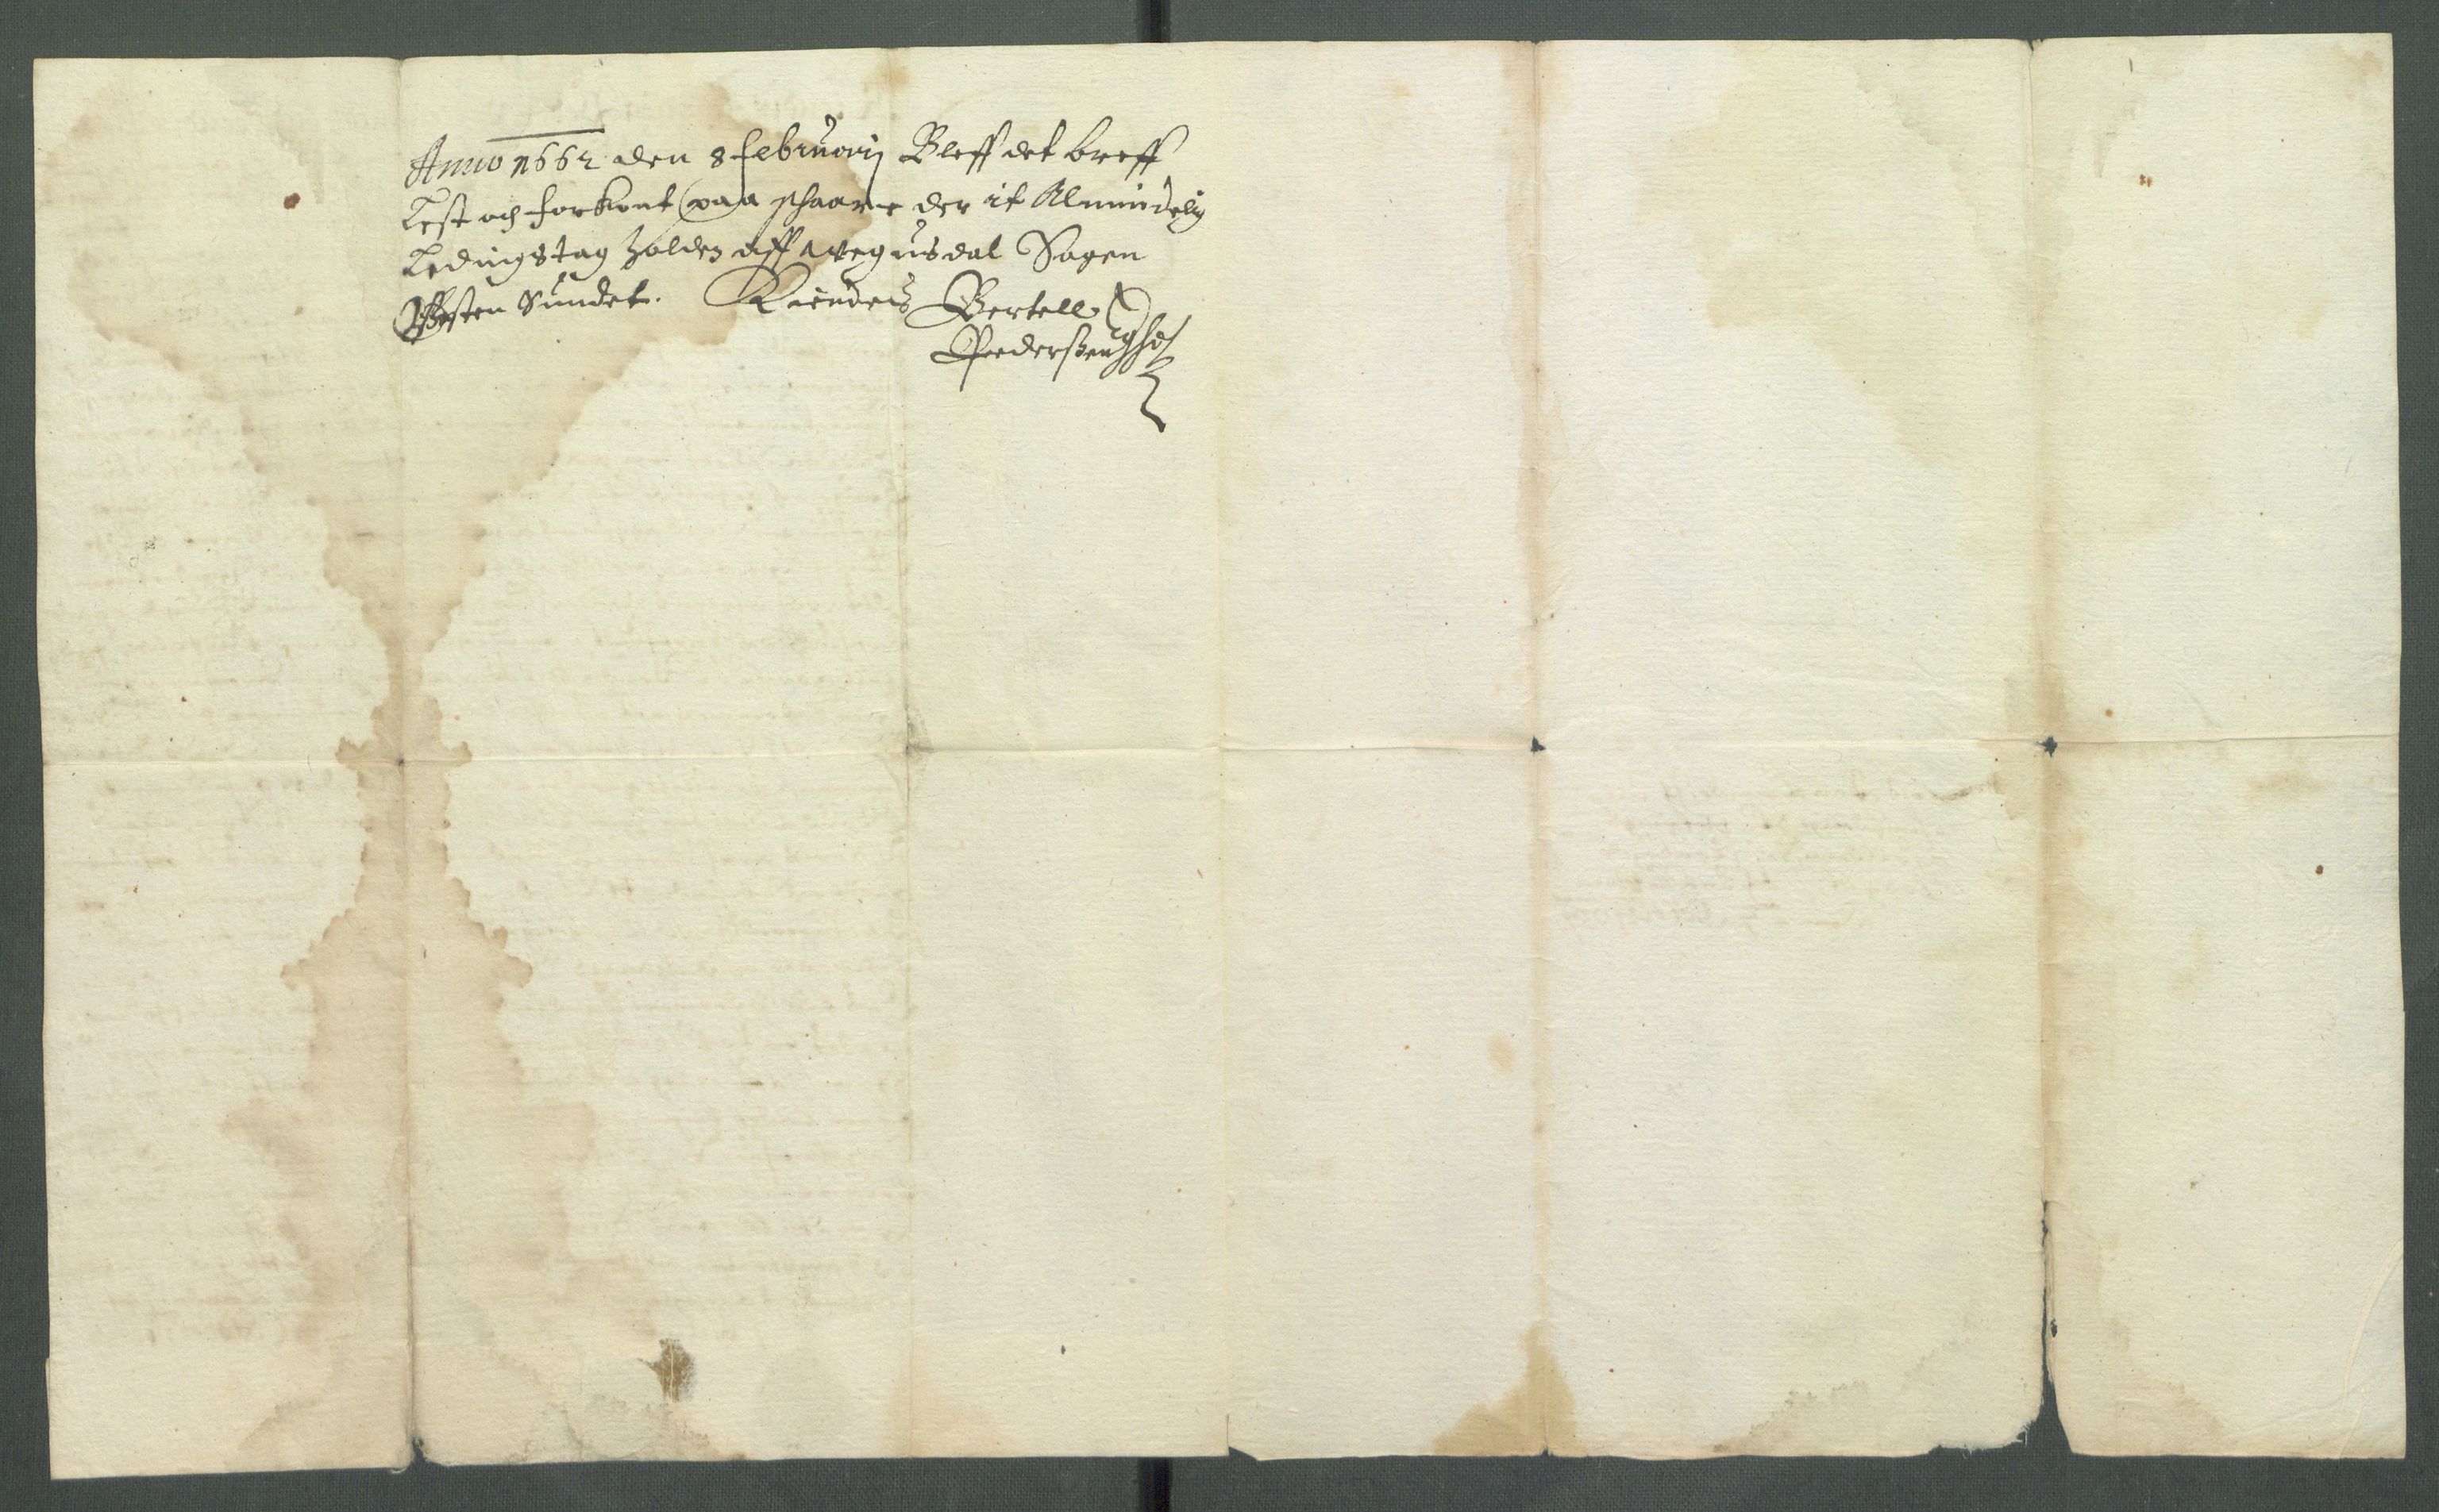 Anno 1662 den 8 februarij Bleff det breff
Lest och forkynt paa schaare der it Almindelig
Ledingstag holdes aff Wegusdal Sogen
Westen Sundet. Bertell
Pederßen